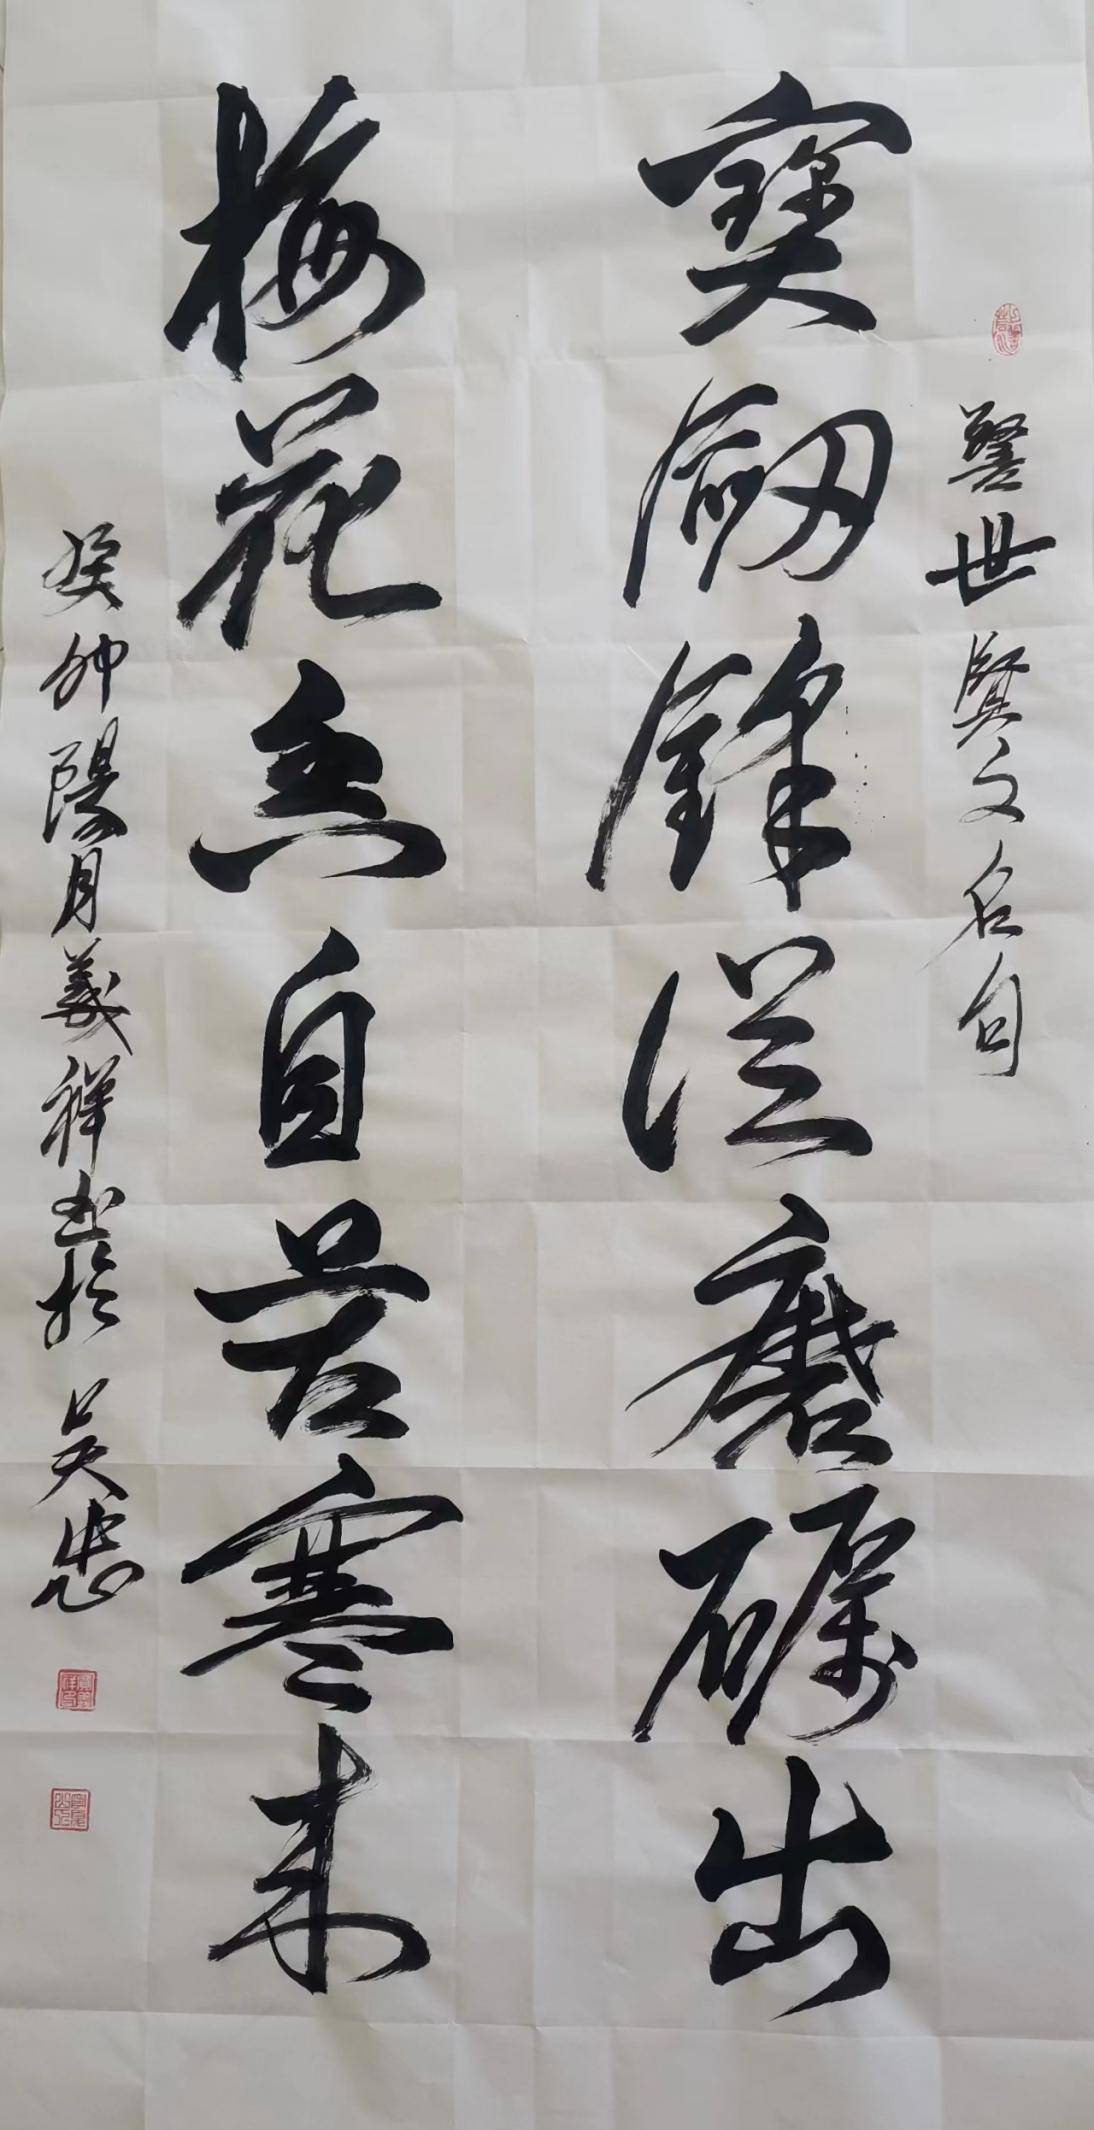 警世賢文名句
寶劒鋒從磨礪出
梅花香自苦寒来
癸卯陽月義祥書於吴忠